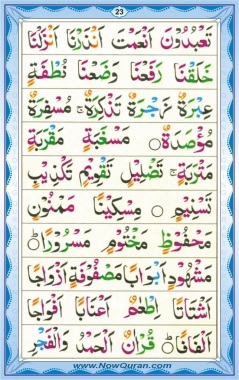 23
تَعْبُدُوْنَ اَنْعَمْتَ اَنْذَرْنَا اَنْزَلْنَا
خَلَقْنَا رَفَعْنَا وَضَعْنَا نُطْفَةٍ
عِبْرَةً زَجْرَةٌ تَذْكِرَةٌ مُسْفِرَةٌ
مُؤْصَدَةٌ مَسْغَبَةٍ مَقْرَبَةٍ
مَتْرَبَةٍ تَضْلِيْلٍ تَقْوِيْمٍ تَكْذِيْبٍ
تَسْنِيْمٍ مِسْكِيْنًا مَمْنُوْنٍ
مَحْفُوْظٍ مَخْتُوْمٍ مَسْرُوْرًا ط
مَشْهُوْدٍ اَبْوَابًا مَصْفُوْفَةٌ اَزْوَاجًا
اَشْتَاتًا اِطْعٰمٌ اَعْنَابًا اَفْوَاجًا
اَلْفَافًا ط قُرْاٰنٌ اَلْحَمْدُ وَالْفَجْرِ
www.NowQuran.com